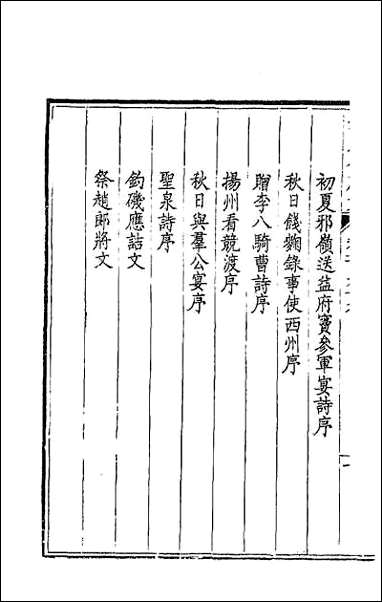 初夏邪嶺送益府竇參軍宴詩序
秋日餞麴錄事使西州序
贈李八騎曹詩序
揚州看競渡序
秋日與羣公宴序
聖泉詩序
釣磯應詰文
祭趙郎將文